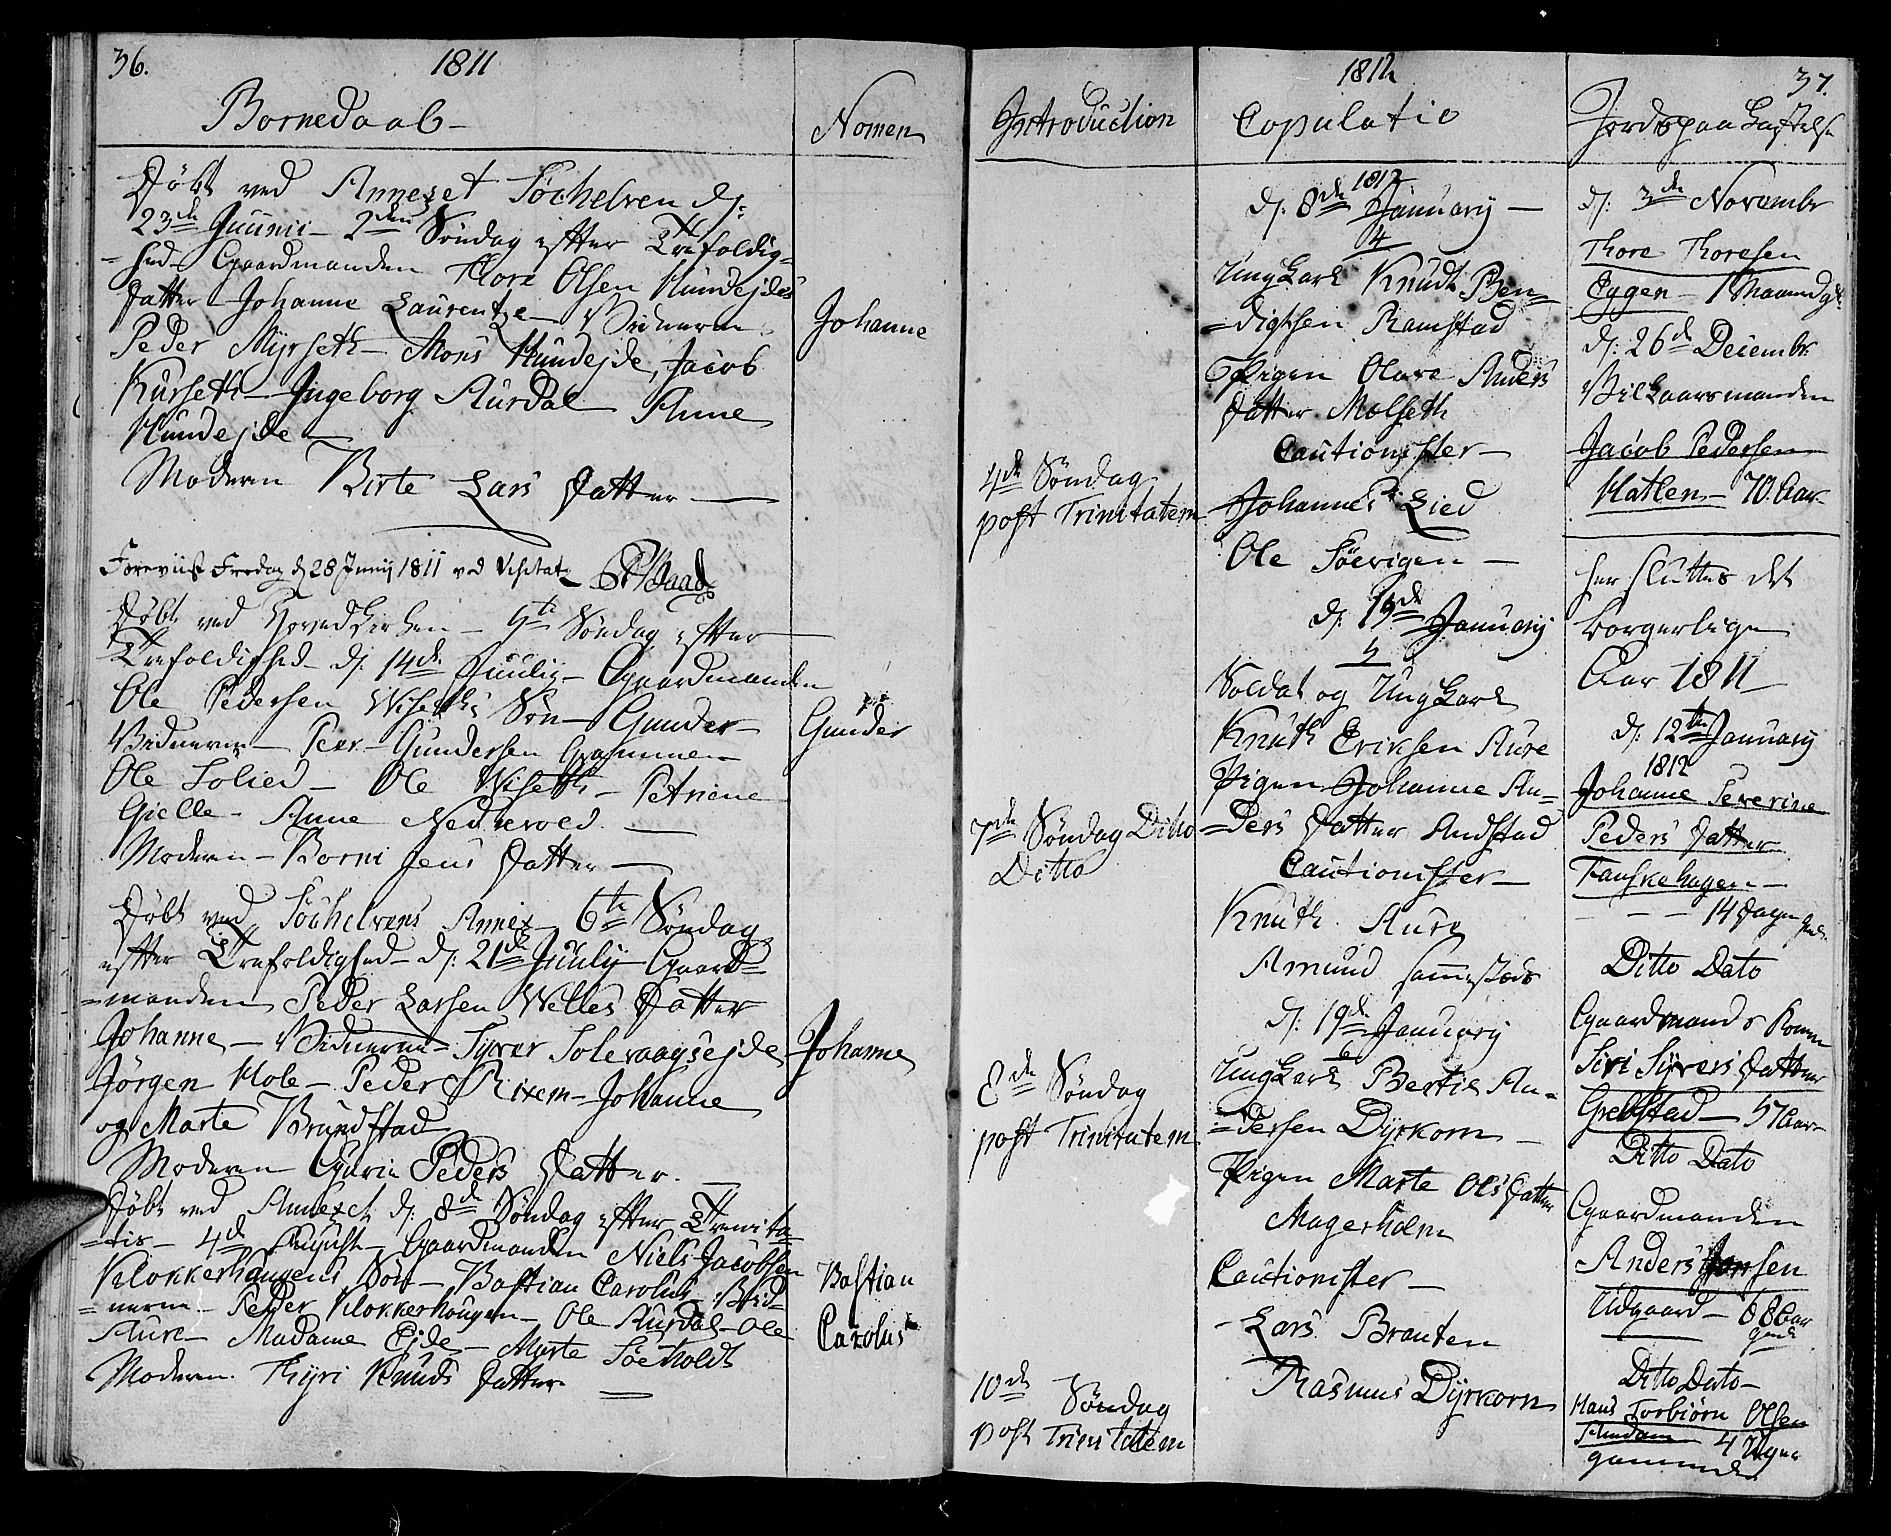 36.
1811
Bornedaab
Nomen
Døbt ved Annexet Søchelven d:
23de Juunii 2den Søndag efter Trefoldig=
=hed Gaardmanden Thore Olsen Hundejdes
Datter Johanne Laurentze Vidnerne
Peder Myrseth Mons Hundejde, Jacob
Kurseth Ingeborg Aurdal Anne
Hundejde
Moderen Birte Lars Datter
Johanne
Foreviist Fredag d 28 Junij 1811 ved Visitatz
Døbt ved Hovedkirken 5te Søndag efter
Trefoldighed d: 14de Juulij Gaardmanden
Ole Pedersen Wiseths Søn Gunder
Vidnerne Peer Gundersen
Ole Solied Ole Wiseth Petriene
Gielle Anne Nedrevold
Moderen Borni Jens Datter
Gunder
Døbt ved Søchelvens Annex 6te Søndag
efter Trefoldighed d: 21de Juulij Gaard=
=manden Peder Larsen Welles Datter
Johanne Vidnerne Syver Solevaagsejde
Jørgen Hole Peder Rixem Johanne
og Marte Brundstad
Moderen Guri Peders Datter.
Johanne
Døbt ved Annexet d: 8de Søndag efter Trinita=
=tis 4de August Gaardmanden Niels Jacobsen
Klokkerhougens Søn Bastian Carolus Vid=
=nerne Peder Klokkerhougen Ole Aurdal Ole
Aure Madame Ejde Marte Søeholdt
Moderen Thyri Knuds Datter
Bastian
Carolus
Introduction
4de Søndag
post Trinitatem
7de Søndag Ditto
Ditto
8de Søndag
post Trinitatem
10de Søndag
post Trinitatem
1812
Copulatio
1812
d: 8de January
4
Ungkarl Knudt Ben=
=digtsen Ramstad
Pigen Olave Anders
Datter Molseth
Cautionister
Johannes Lied
Ole Söevigen
d: 15de January
5
Soldat og Ungkarl
Knuth Eriksen Aure
Pigen Johanne An=
=ders Datter Andstad
Cautionister
Knuth Aure
Amund sammestæds
d: 19de January
6
Ungkarl Bertil An=
=dersen Dyrkorn
Pigen Marte Ols Datter
Magerholm
Cautionister
Lars Brauten
Rasmus Dyrkorn
37.
Jordspaa Kastelse
d: 3de Novembr
Thore Thoresen
Eggen 1 Maaned gl.
d: 26de Decembr
Vilkaarsmanden
Jacob Pedersen
Hatlen 70 Aar
her sluttes det
borgerlige
Aar 1811
d: 12te January
1812
Johanne Severine
Peders Datter
Fauskehagen
14 Dage gml.
Ditto Dato
Gaardmands Kone
Siri Syvers Datter
Grebstad 57 Aar
Ditto Dato
Gaardmanden
Anders Jonsen
Udgaard 68 Aar
gml
Ditto Dato
Hans Torbiørn Olsen
4 Uger
gammel